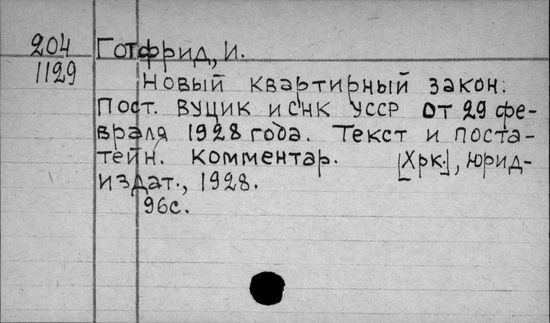 204 Готфрид, И.
1129
Новый квартирный закон:
Пост. ВУЦИК и СНК УССР от 29 фе-
враля 1928 года. Текст и поста-
тейн. комментар. [Хрк.], Юрид-
издат., 1928.
96с.